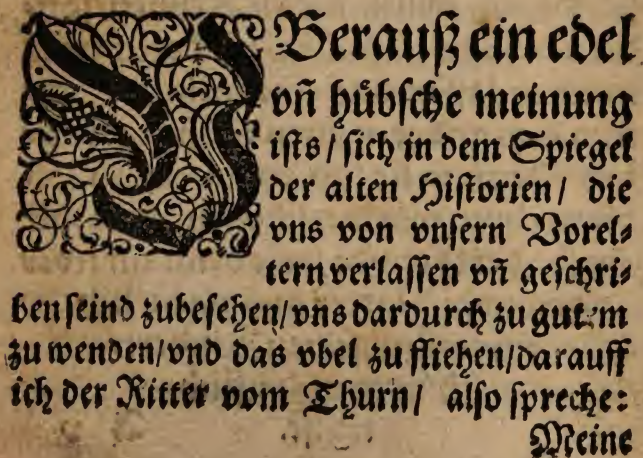 VBerauß ein edel
vñ huͤbsche meinung
ists / sich in dem Spiegel
der alten Historien / die
vns von vnsern Vorel⸗
tern verlassen vñ geschri⸗
ben seind zubesehen / vns dardurch zu gutem
zu wenden / vnd das vbel zu fliehen / darauff
ich der Ritter vom Thurn / also spreche:
Meine